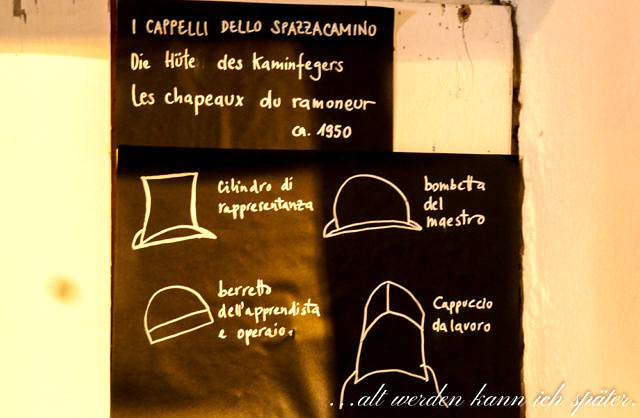 I CAPPELLI DELLO SPAZZACAMINO
Die Hüte des Kaminfegers
Les chapeaux du ramoneur
ca. 1950
cilindro di
rappresentanza
bombetta
del
maestro
berretto
dell'apprendista
e operaio.
Cappuccio
da lavoro
...alt werden kann ich später.